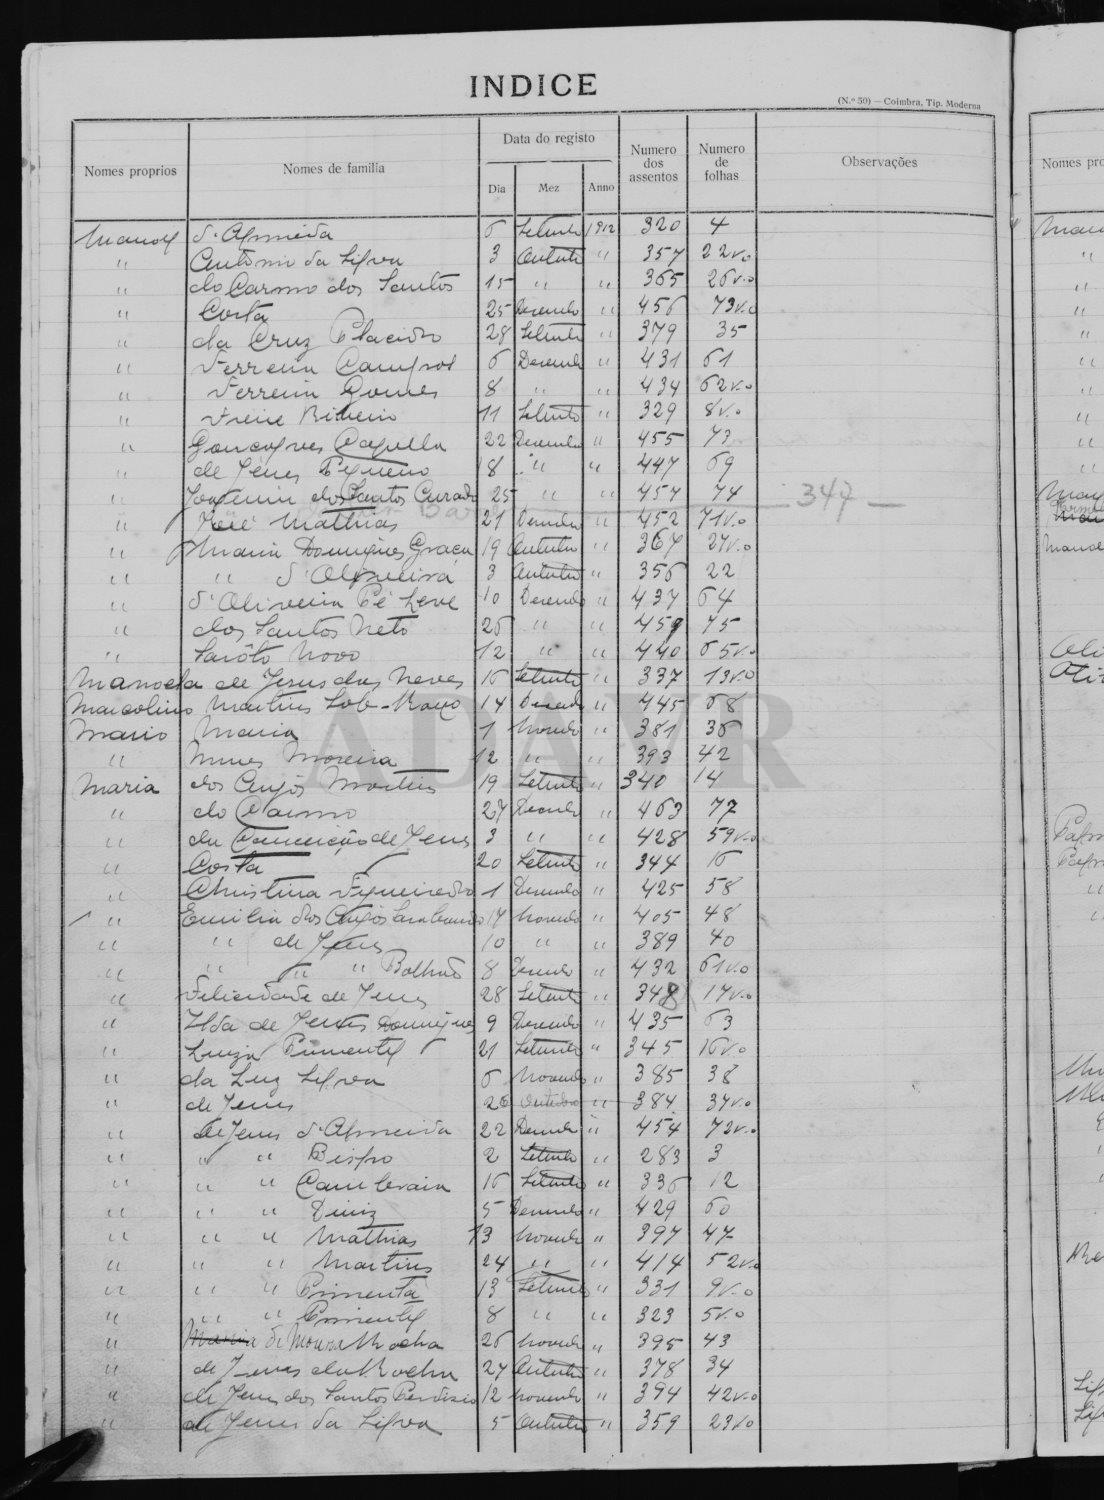 INDICE
(N.º 50) — Coimbra, Tip. Moderna
Nomes proprios Nomes de familia Data do registo Dia Mez Anno Numero dos assentos Numero de folhas Observações
Manoel d'Almeida 6 Setembro 1912 320 4
" Antonio da Silva 3 Outubro " 357 22v.o
" do Carmo dos Santos 15 " " 365 26v.o
" Costa 25 Dezembro " 456 73v.o
" da Cruz Placido 28 Setembro " 379 35
" Ferreira Campos 6 Dezembro " 431 61
" Ferreira Gomes 8 " " 434 62v.o
" Freire Ribeiro 11 Setembro " 329 8v.o
" Gonçalves Capella 22 Dezembro " 455 73
" de Jesus Pequeno 18 " " 447 69
" Joaquim dos Santos Curado 25 " " 457 74 347
" José Mathias 21 Dezembro " 452 71v.o
" Maria Domingues Graça 19 Outubro " 367 27v.o
" " d'Oliveira 3 Outubro " 356 22
" d'Oliveira Pé Leve 10 Dezembro " 437 64
" dos Santos Neto 26 " " 459 75
" Sarôto Novo 12 " " 440 65v.o
Manoela de Jesus das Neves 16 Setembro " 337 13v.o
Marcolino Martins 14 Dezembro " 445 68
Mario Maria 1 Novembro " 381 36
" Nunes Moreira 12 " " 393 42
Maria dos Anjos Martins 19 Setembro " 340 14
" do Carmo 27 Dezembro " 463 77
" da Conceição de Jesus 3 " " 428 59v.o
" Costa 20 Setembro " 344 16
" Christina Figueiredo 1 Dezembro " 425 58
" Emilia dos Anjos 14 Novembro " 405 48
" " de Jesus 10 " " 389 40
" " " " Bolhão 8 Dezembro " 432 61v.o
" Felicidade de Jesus 28 Setembro " 348 17v.o
" Ilda de Jesus Domingues 9 Dezembro " 435 63
" Luiza Pimentel 21 Setembro " 345 16v.o
" da Luz Silva 6 Novembro " 385 38
" de Jesus 26 Outubro " 384 37v.o
" de Jesus d'Almeida 22 Dezembro " 454 72v.o
" " " Bispo 2 Setembro " 283 3
" " " Cambraia 16 Setembro " 336 12
" " " Diniz 5 Dezembro " 429 60
" " " Mathias 13 Novembro " 397 47
" " " Martins 24 " " 414 52v.o
" " " Pimenta 13 Setembro " 331 9v.o
" " " Pimentel 8 " " 323 5v.o
" Maria de Moura Rocha 26 Novembro " 395 43
" de Jesus da Rocha 27 Outubro " 378 34
" de Jesus dos Santos 12 Novembro " 394 42v.o
" de Jesus da Silva 5 Outubro " 359 23v.o
ADAVR